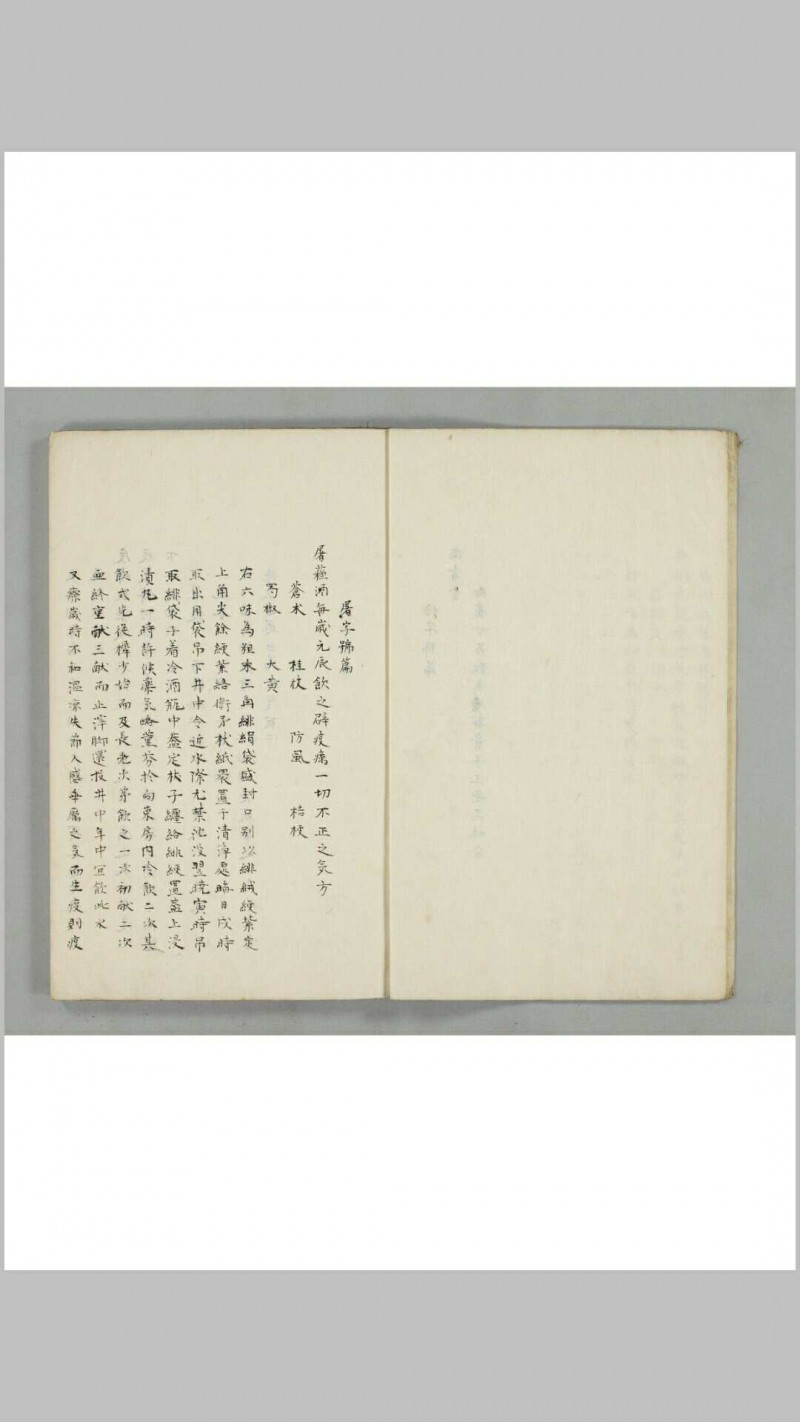 屠字號篇
屠蘓酒每歳元辰飲之辟疫癘一切不正之気方
蒼朮 桂枝 防風 桔梗
蜀椒 大黄
右六味為粗末三角緋絹袋盛封口別以緋絨綬紮定
上角尖餘綬紮絡衡子杖紙裹置于清浄處晦日戌時
取出用袋吊下井中令近水際尤禁沈没翌暁寅時吊
取緋袋子着冷酒瓶中蓋定杖子纏絡緋綬置蓋上浸
漬凡一時許候薬気 薫芬於向東房内冷飲二次其
飲式先從穉少始而及長老次第飲之一次初献二次
亜終重献三献而止滓脚還投井中年中宜飲此水
又療歳時不和温涼失節人感乖厲之気而生疫則疫